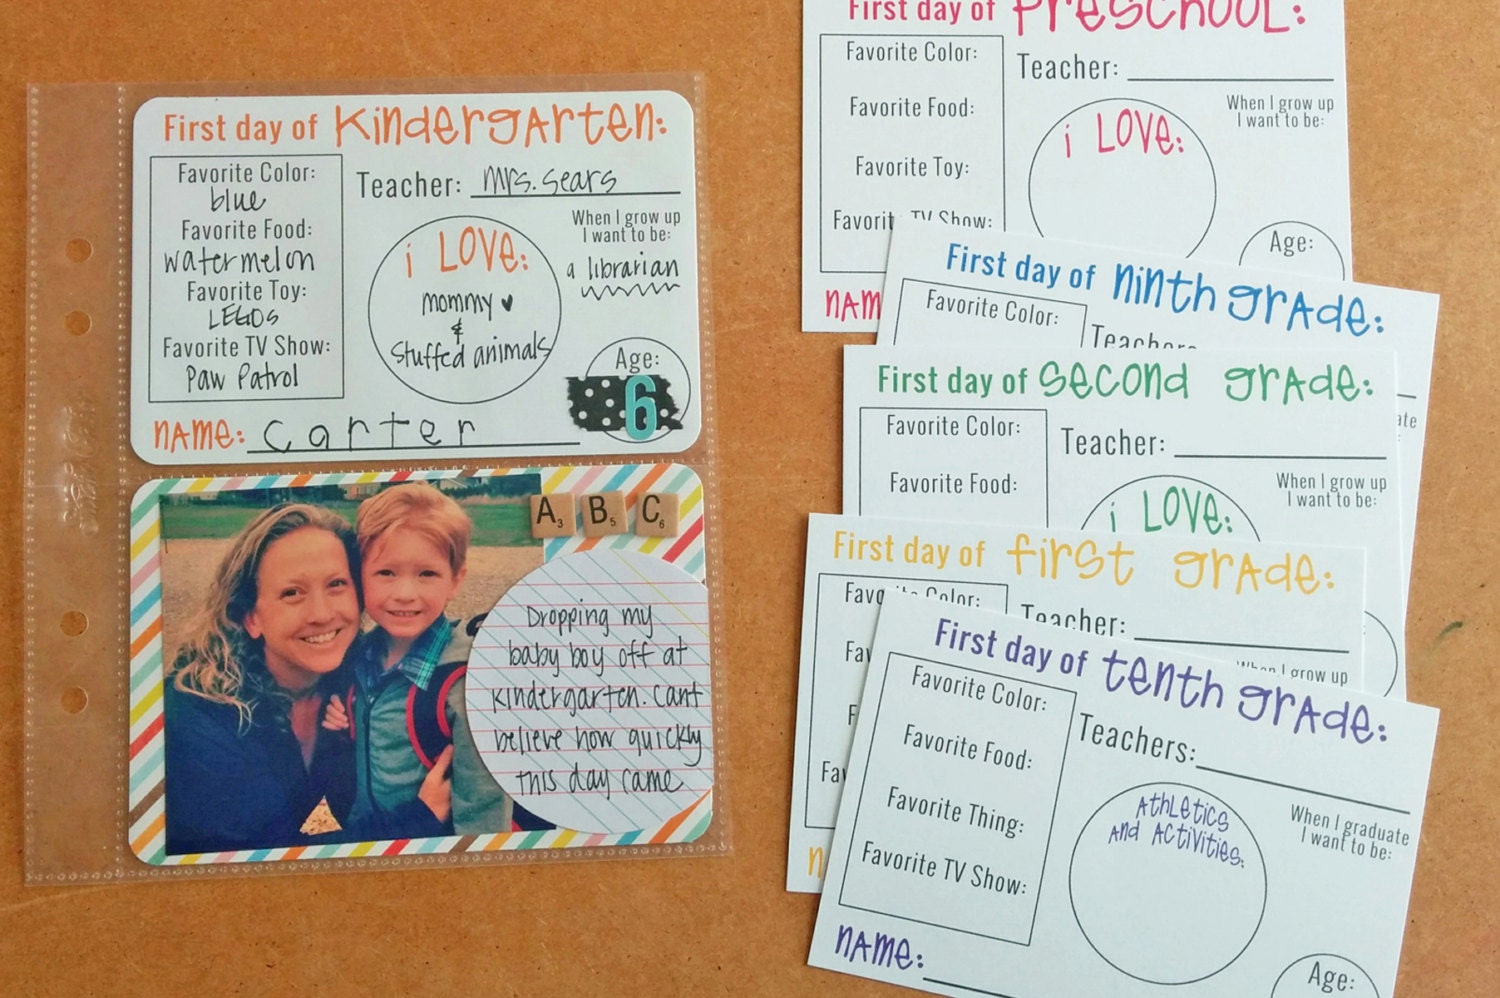 First day of Kindergarten:
Favorite Color:
blue
Favorite Food:
watermelon
Favorite Toy:
LEGOs
Favorite TV Show:
Paw Patrol
Teacher: Mrs. Sears
i LOVE:
mommy ♥
&
stuffed animals
When I grow up
I want to be:
a librarian
Age:
6
NAME: Carter
A3 B5 C6
Dropping my
baby boy off at
kindergarten. Cant
believe how quickly
this day came
First day of PRESCHOOL:
Favorite Color:
Favorite Food:
Favorite Toy:
Favorit TV Show:
Teacher:
i LOVE:
When I grow up
I want to be:
Age:
NAM
First day of ninth grade:
Favorite Color:
Teachers
ate
First day of second grade:
Favorite Color:
Favorite Food:
Teacher:
i LOVE:
When I grow up
I want to be:
First day of first grade:
Favo Color:
Fav
F
Fa
Teacher:
When I grow up
n
First day of tenth grade:
Favorite Color:
Favorite Food:
Favorite Thing:
Favorite TV Show:
Teachers:
Athletics
and Activities:
When I graduate
I want to be:
NAME:
Age: